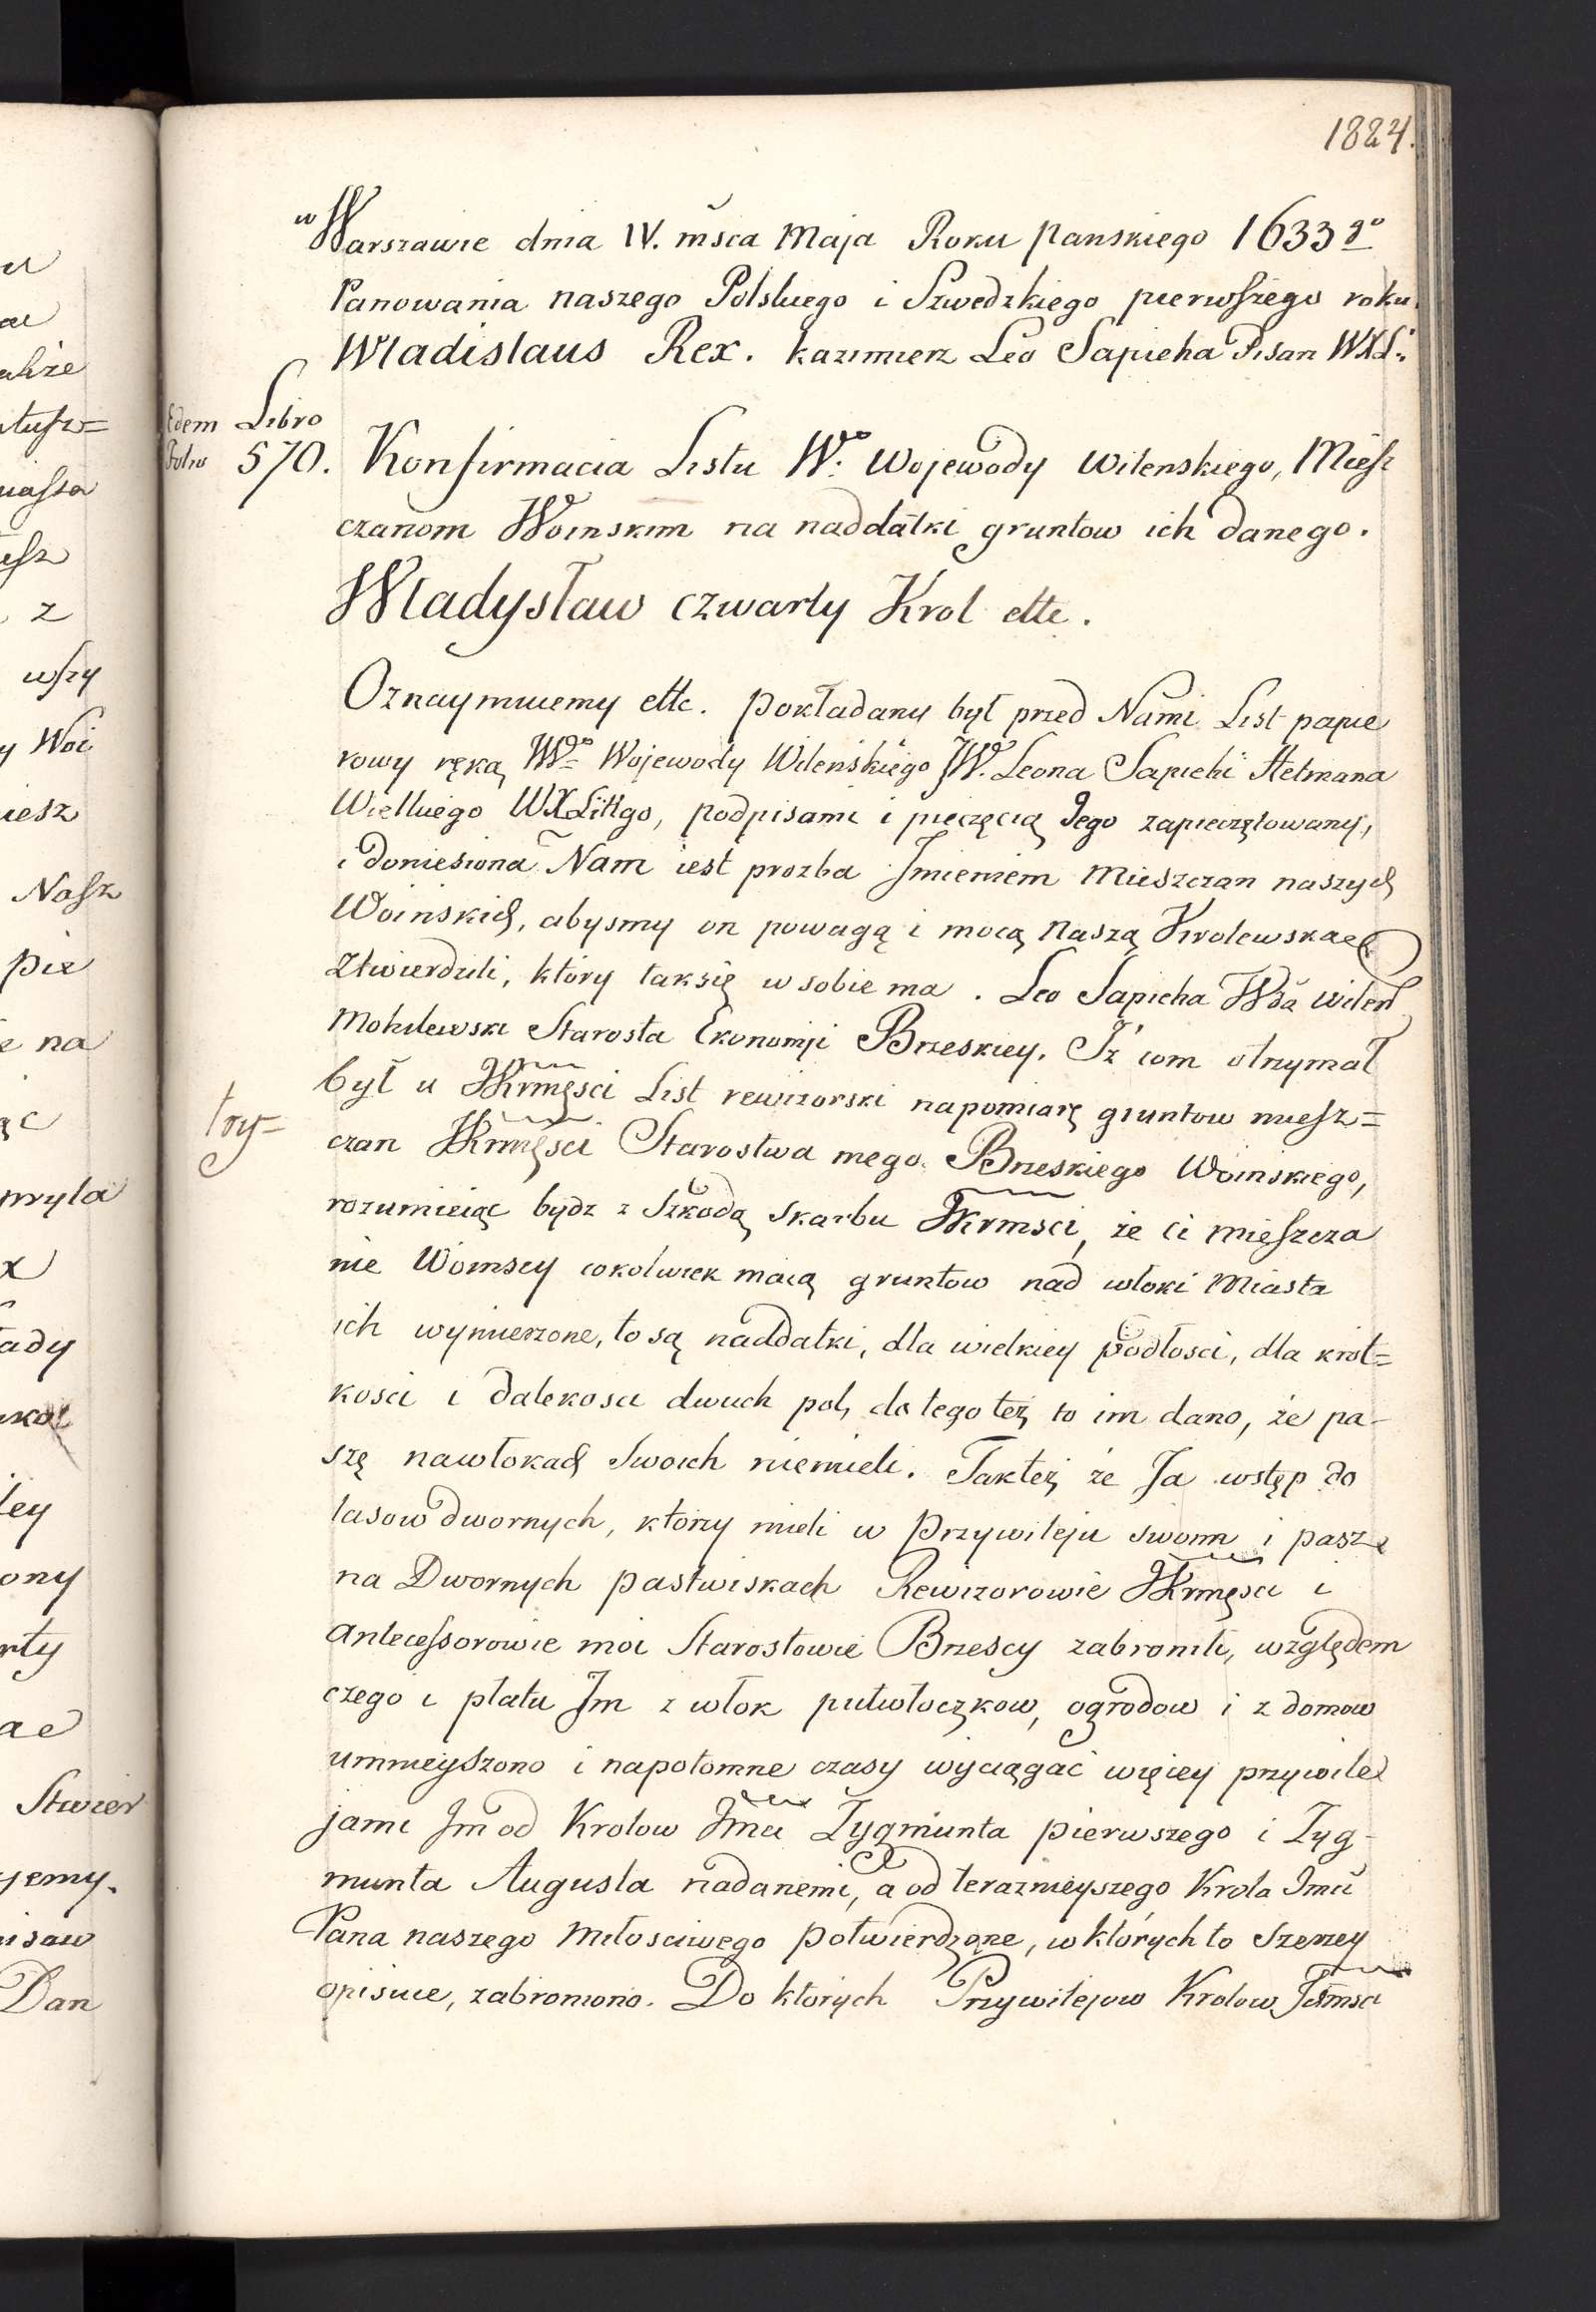 1824.
w Warszawie dnia IV. mśca Maja Roku panskiego 1633 go
Panowania naszego Polskiego i Szwedzkiego pierwszego roku.
Wladislaus Rex. Kazimierz Leo Sapieha Pisarz WXL:
Edem Libro
Folio 570. Konfirmacia Listu Wo. Wojewody wilenskiego, Miesz
czanom Woinskim na naddatki gruntow ich danego.
Władysław czwarty Krol ettc.
Oznaymuiemy ettc. pokładany był przed Nami List papie
rowy ręką Wgo Wojewody Wilenskiego JW. Leona Sapiehi Hetmana
Wielkiego WXLittgo, podpisami i pieczęcią Jego zapieczętowany,
i doniesiona Nam iest prozba Imieniem Mieszczan naszych
Woinskich, abysmy on powagą i mocą Naszą Krolewskae
Ztwierdzili, który taksię w sobie ma. Leo Sapieha Wda wilen
Mohilewski Starosta Ekonomji Brzeskiey. Iż iom otrzymał
był u JKrmęsci List rewizorski napomiarę gruntow miesz=
try=
czan JKrmęsci Starostwa mego Brzeskiego Woinskiego,
rozumieiąc bydz z Szkodą Skarbu JKrmsci, że ci mieszcza
nie Woinscy cokolwiek maią gruntow nad włoki Miasta
ich wymierzone, to są naddatki, dla wielkiey podłosci, dla krot=
kosci i dalekosci dwuch pol, do tego też to im dano, że pa-
szę nawłokach Swoich niemieli. Takteż że Ja wstęp do
lasow dwornych, ktorzy mieli w przywileju swoim i paszę
na Dwornych pastwiskach Rewizorowie JKrmęsci i
antecessorowie moi Starostowie Brzescy zabronili, względem
czego i płatu Jm z włok pułwłoczkow, ogrodow i z domow
ummieyszono i napotomne czasy wyciągać więcey przywile
jami Jm od Krolow Jmci Zygmunta pierwszego i Zyg-
munta Augusta nadanemi, a od terazmieyszego Krola Jmci
Pana naszego miłosciwego potwierdzone, w których to szerzey
opisuie, zabroniono. Do ktorych Przywilejow Krolow Jchmsci